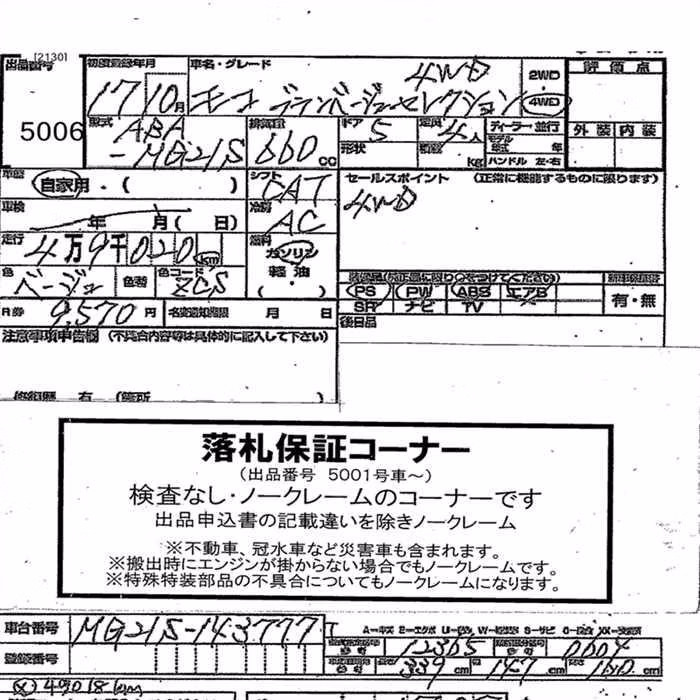 [2130]
出品番号 初度登録年月 車名・グレード 4WD 2WD 評価点
5006 17 10月 モコ ブランベージュセレクション 4WD
型式 ABA-MG21S 排気量 660 cc ドア 5 形状 定員 4人 積載 kg ディーラー・並行 モデル年式 年 ハンドル 左・右 外装 内装
車歴 自家用・( ) シフト CAT セールスポイント (正常に機能するものに限ります)
車検 年 月 ( 日) 冷房 AC 4WD
走行 4万9千020 km 燃料 ガソリン 軽油 ( )
色 ベージュ 色替 色コード ZCS
PS PW ABS エアB 有・無
SR ナビ TV
R券 9,570 円 名変通知期限 月 日 後日品
注意事項申告欄 (不具合内容等は具体的に記入して下さい)
修復歴 有 (箇所 )
落札保証コーナー
(出品番号 5001号車~)
検査なし・ノークレームのコーナーです
出品申込書の記載違いを除きノークレーム
※不動車、冠水車など災害車も含まれます。
※搬出時にエンジンが掛からない場合でもノークレームです。
※特殊特装部品の不具合についてもノークレームになります。
車台番号 MG21S-143777
登録番号 12365 0604
339 cm 147 cm cm
49018km